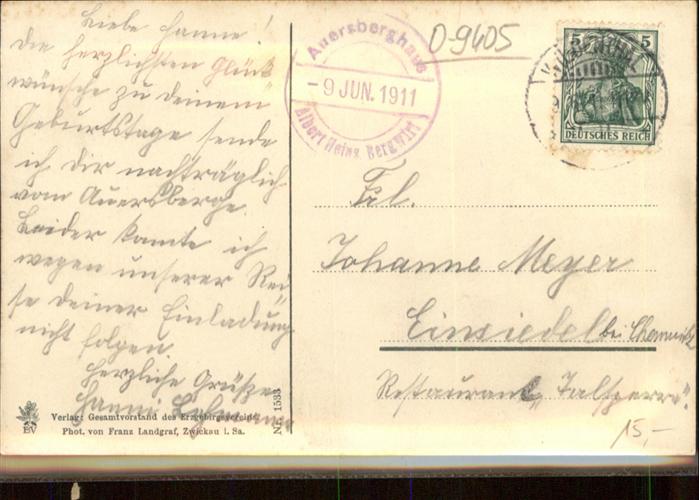 Liebe Hanne!
Die herzlichsten Glück-
wünsche zu deinem
Geburtstage sende
ich dir nachträglich
vom Auersberge.
Leider konnte ich
wegen unserer Rei-
se deiner Einladung
nicht folgen.
Herzliche Grüße
Hanni
Verlag: Gesamtvorstand des Erzgebirgsvereins.
Phot. von Franz Landgraf, Zwickau i. Sa.
BV
No. 1533
Auersberghaus
-9 JUN. 1911
Albert Heinz, Bergwirt
0-9405
5 5
DEUTSCHES REICH
Frl.
Johanne Meyer
Einsiedel bei Chemnitz
Restaurant „Talsperre".
15,-